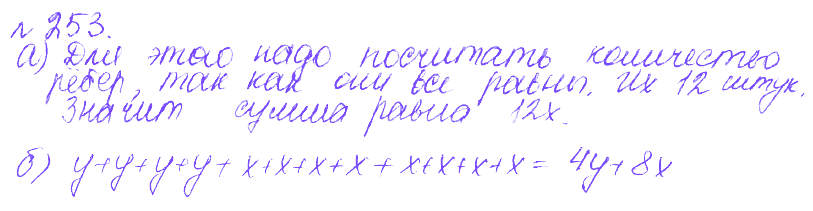 №253.
а) Для этого надо посчитать количество
рёбер, так как они все равны. Их 12 штук.
Значит сумма равна 12x.
б) y+y+y+y+x+x+x+x+x+x+x+x = 4y+8x